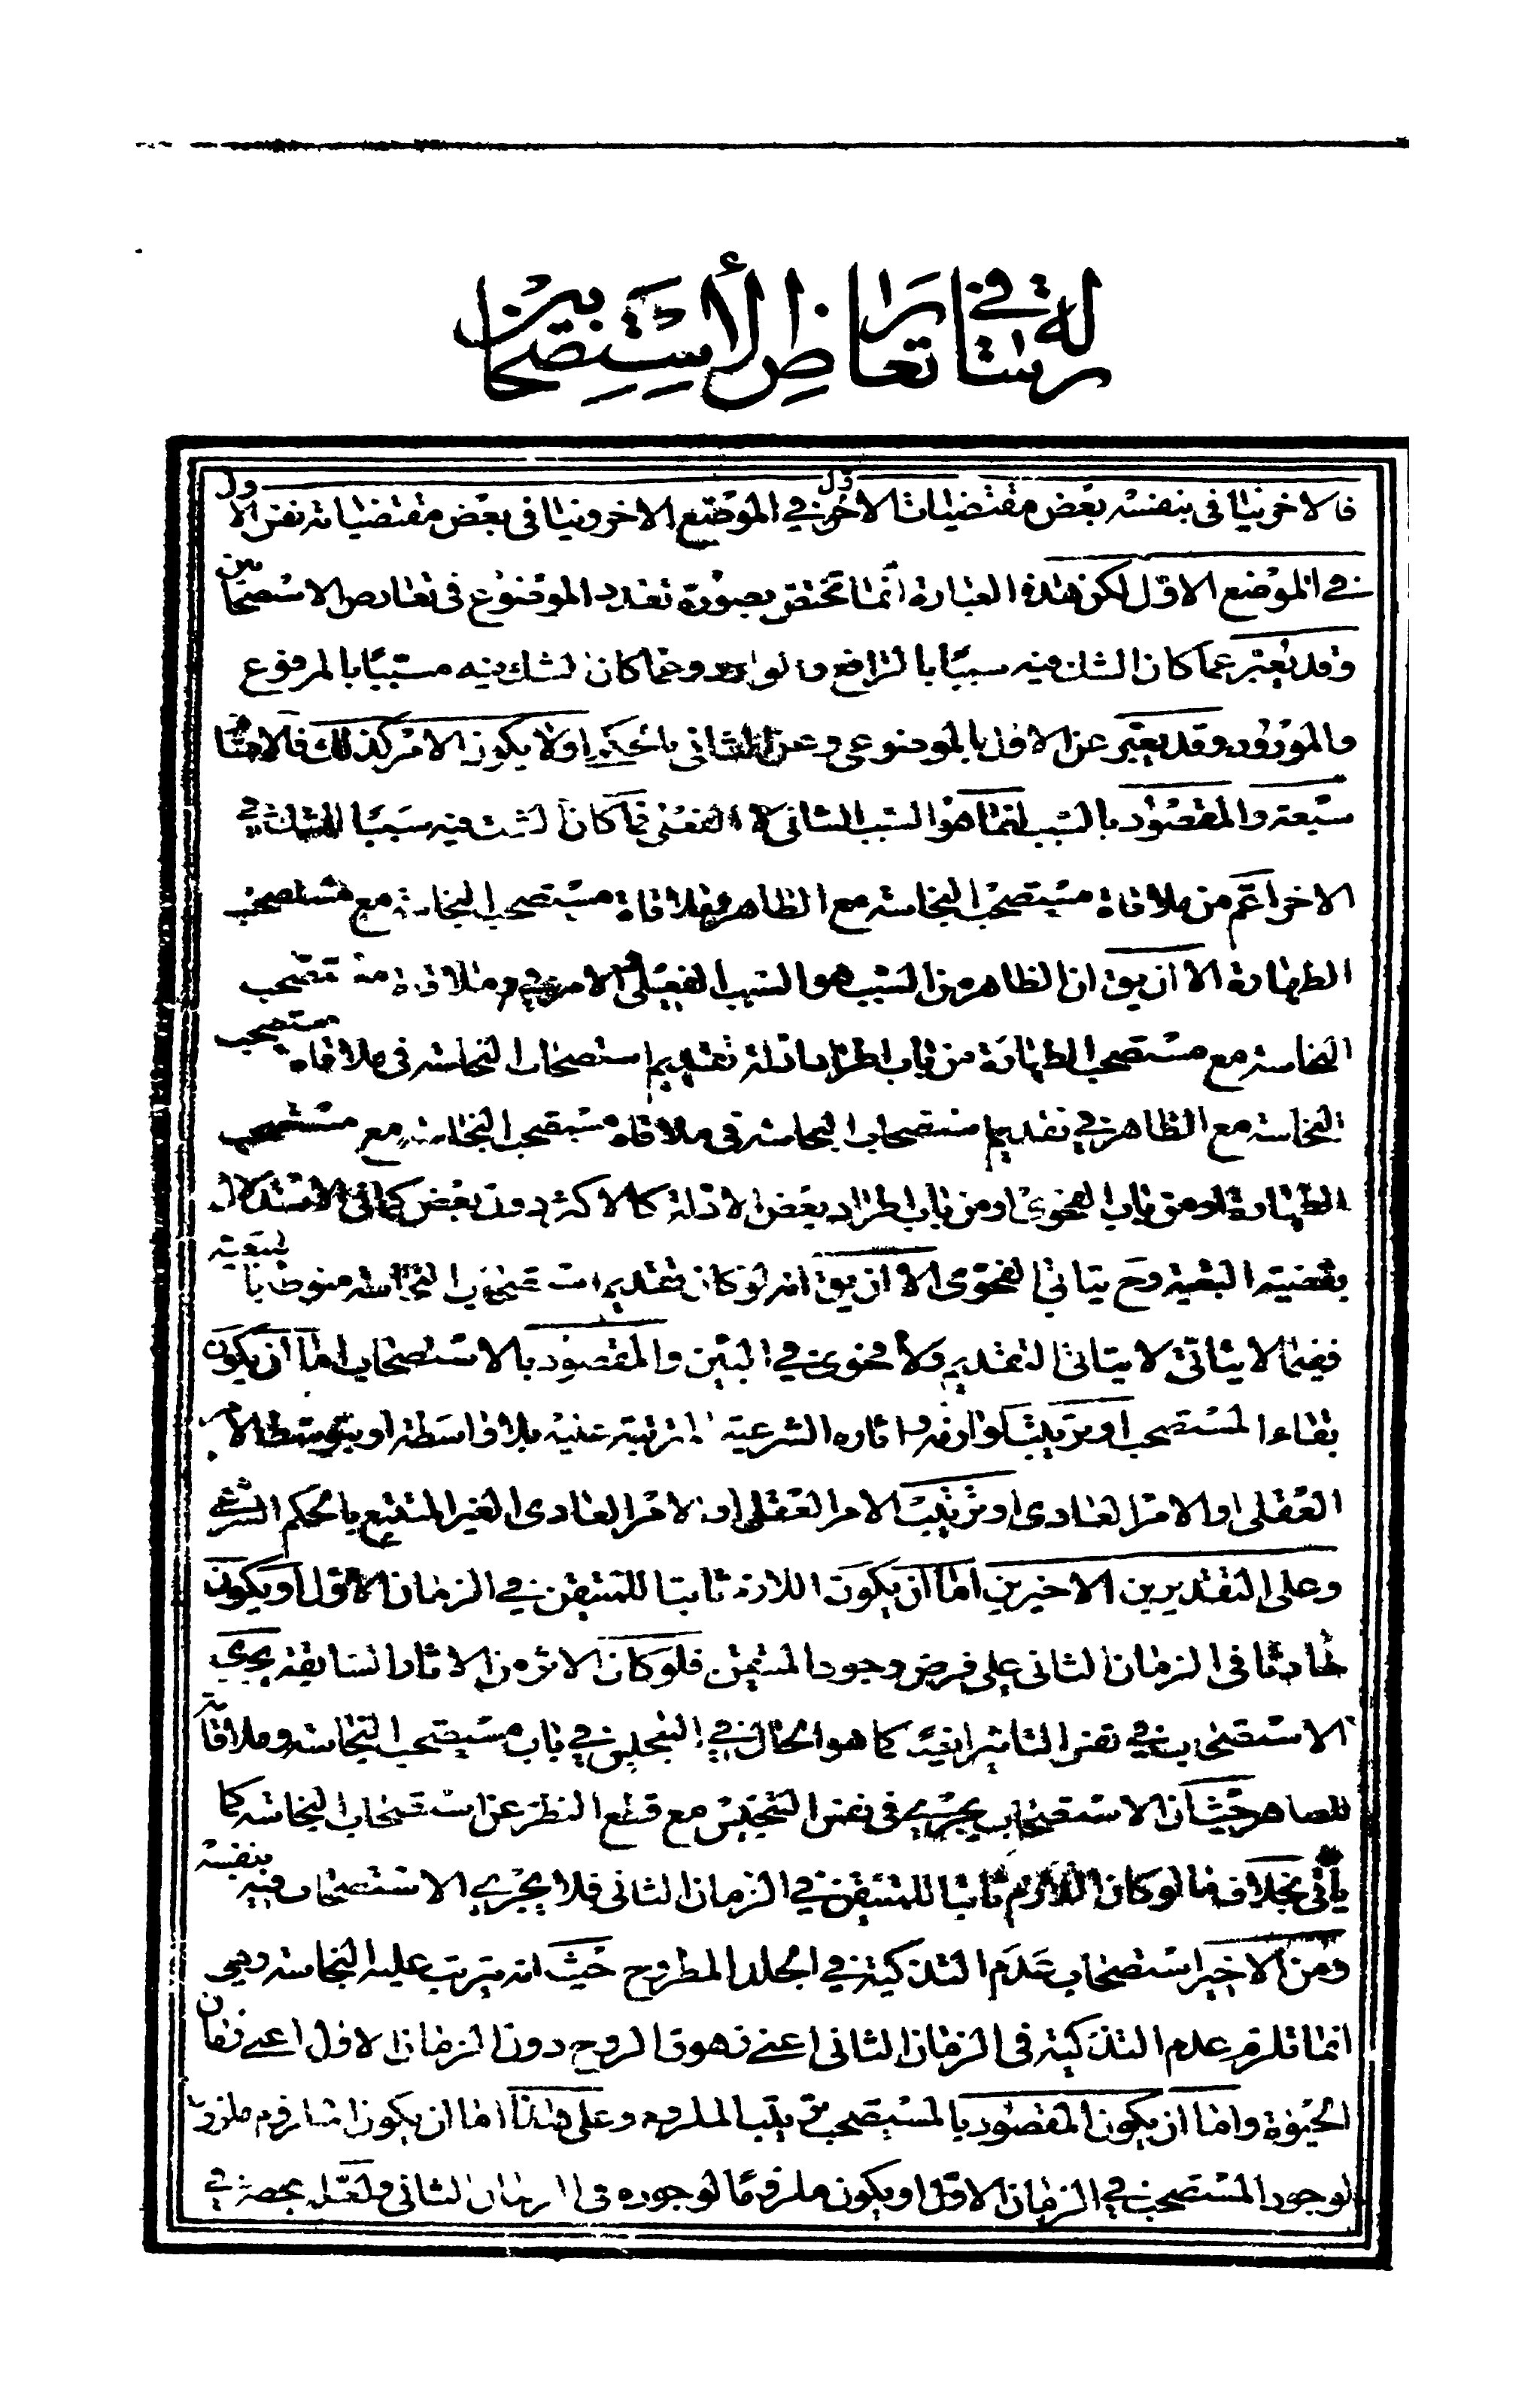 رسالة في تعارض الأستصحابين
فالاخر ينافى بنفسه بعض مقتضيات الاخر في الموضع الاول الاخر وينافى بعض مقتضياته نفس الاول
في الموضع الاول لكن هذه العبارة انما تختص بصورة تعدد الموضوع فى تعارض الاستصحابين
وقد يعبر عما كان الشك فيه سببيًا بالرافع والوارد وعما كان الشك فيه مسببيًا بالمرفوع
والمورود وقد يعبر عن الاول بالموضوعى وعن الثانى بالحكمى اولا يكون الامر كذلك فالاقسام
سبعة والمقصود بالسبب انما هو السبب الشانى لا الفعلى فما كان الشك فيه سببًا للشك في
الاخر اعم من ملاقاة مستصحب النجاسة مع الطاهر وملاقاة مستصحب النجاسة مع مستصحب
الطهارة الا ان يق ان الظاهر من السبب هو السبب الفعلى الامر في ملاقاة مستصحب
النجاسة مع مستصحب الطهارة من باب اطراد ادلة تقديم استصحاب النجاسة فى ملاقاة مستصحب
النجاسة مع الطاهر في تقديم استصحاب النجاسة فى ملاقاة مستصحب النجاسة مع مستصحب
الطهارة او من باب الفحوى او من باب اطراد بعض الادلة كالاكثر دون بعض كما فى الاستدلال
بقضية التبعية وح يتاتى الفحوى الا ان يق انه لو كان تقديم استصحاب النجاسة منوطا بالتبعية
ففيما لا يتاتى لا يتاتى التقديم ولا فحوى في البين والمقصود بالاستصحاب اما ان يكون
بقاء المستصحب او ترتيب لوازمه واثاره الشرعية المترتبة عليه بلا واسطة او بتوسط الامر
العقلى او الامر العادى او ترتيب الامر العقلى او الامر العادى الغير المستتبع بالحكم الشرعي
وعلى التقديرين الاخيرين اما ان يكون اللازم ثابتا للمتيقن في الزمان الاول او يكون
حادثا فى الزمان الثانى على فرض وجود المتيقن فلو كان الاثر من الاثار السابقة يجرى
الاستصحاب في نفس التاثير ايضًا كما هو الحال في التنجيس في باب مستصحب النجاسة وملاقاته
للطاهر حيث ان الاستصحاب يجري فى نفس التنجيس مع قطع النظر عن استصحاب النجاسة كما
يأتى بخلاف ما لو كان اللازم ثابتا للمتيقن في الزمان الثانى فلا يجري الاستصحاب فيه بنفسه
ومن الاخير استصحاب عدم التذكية في الجلد المطروح حيث انه يترتب عليه النجاسة وهى
انما تلزم عدم التذكية فى الزمان الثانى اعنى زهوق الروح دون الزمان الاول اعني زمان
الحيوة واما ان يكون المقصود بالمستصحب ترتيب الملزوم وعلى هذا اما ان يكون ملزوما
لوجود المستصحب في الزمان الاول او يكون ملزومًا لوجوده فى الزمان الثانى ولعل يحصر في